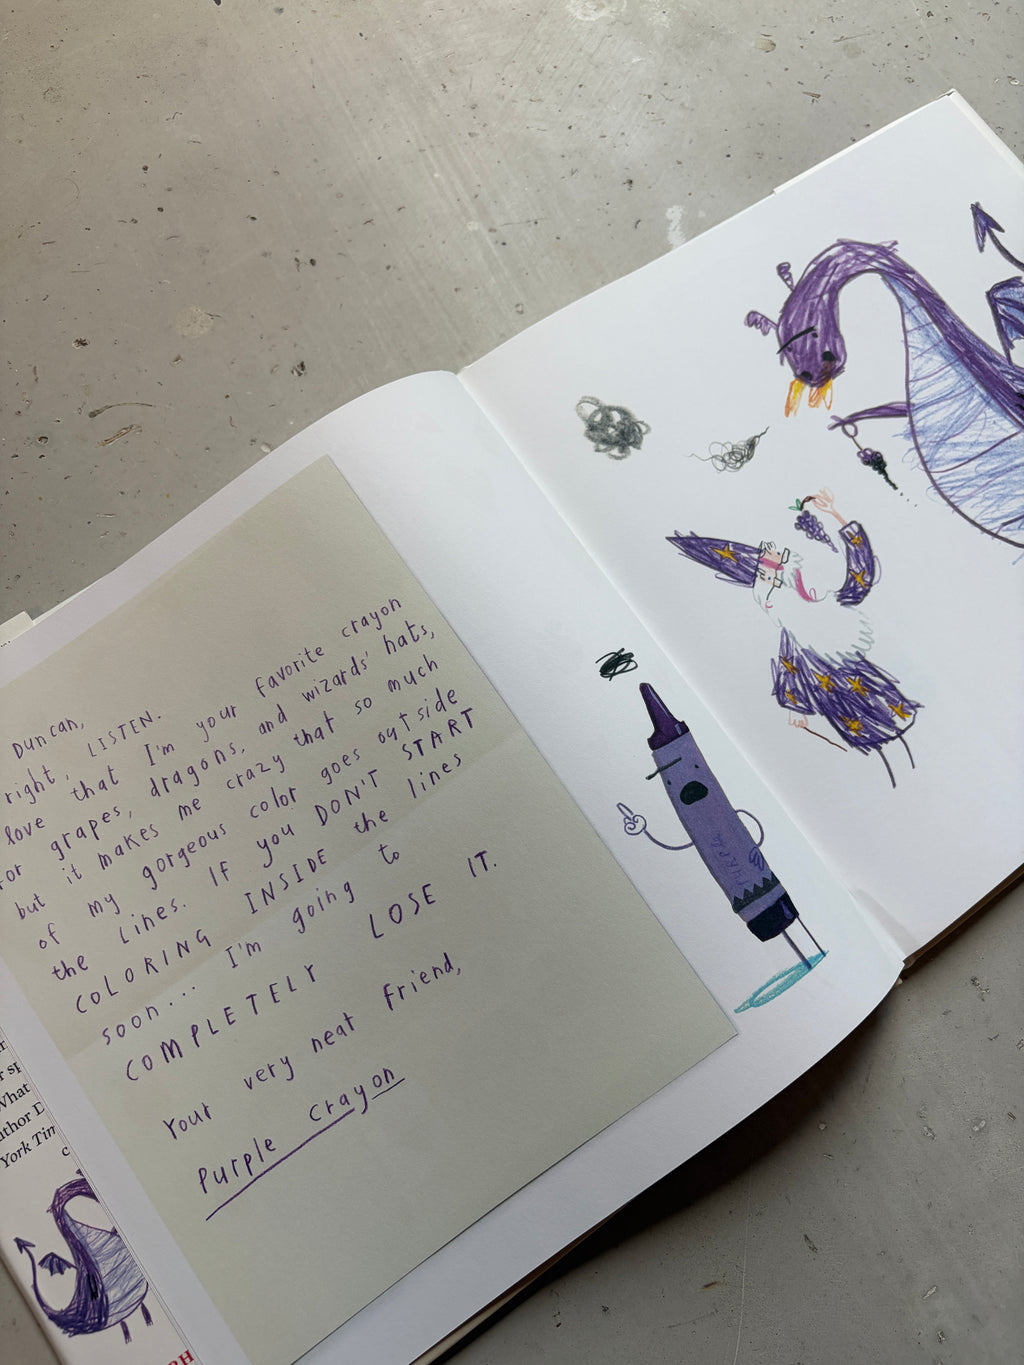 Duncan,
right, LISTEN.
love that I'm your favorite crayon
for grapes, dragons, and wizards' hats,
but it makes me crazy that so much
of my gorgeous color goes outside
the lines. IF you DON'T START
COLORING INSIDE the lines
soon... I'm going to
COMPLETELY LOSE IT.
Your very neat friend,
Purple crayon
What
York Tim